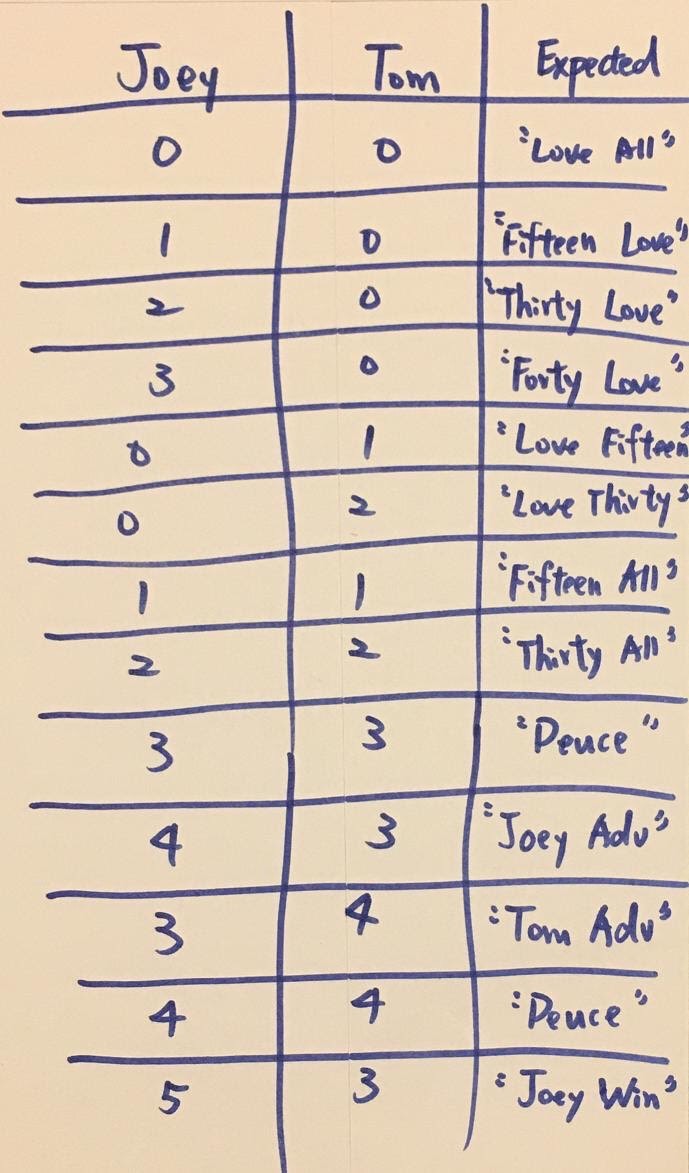 Joey Tom Expected
0 0 "Love All"
1 0 "Fifteen Love"
2 0 "Thirty Love"
3 0 "Forty Love"
0 1 "Love Fifteen"
0 2 "Love Thirty"
1 1 "Fifteen All"
2 2 "Thirty All"
3 3 "Deuce"
4 3 "Joey Adv"
3 4 "Tom Adv"
4 4 "Deuce"
5 3 "Joey Win"